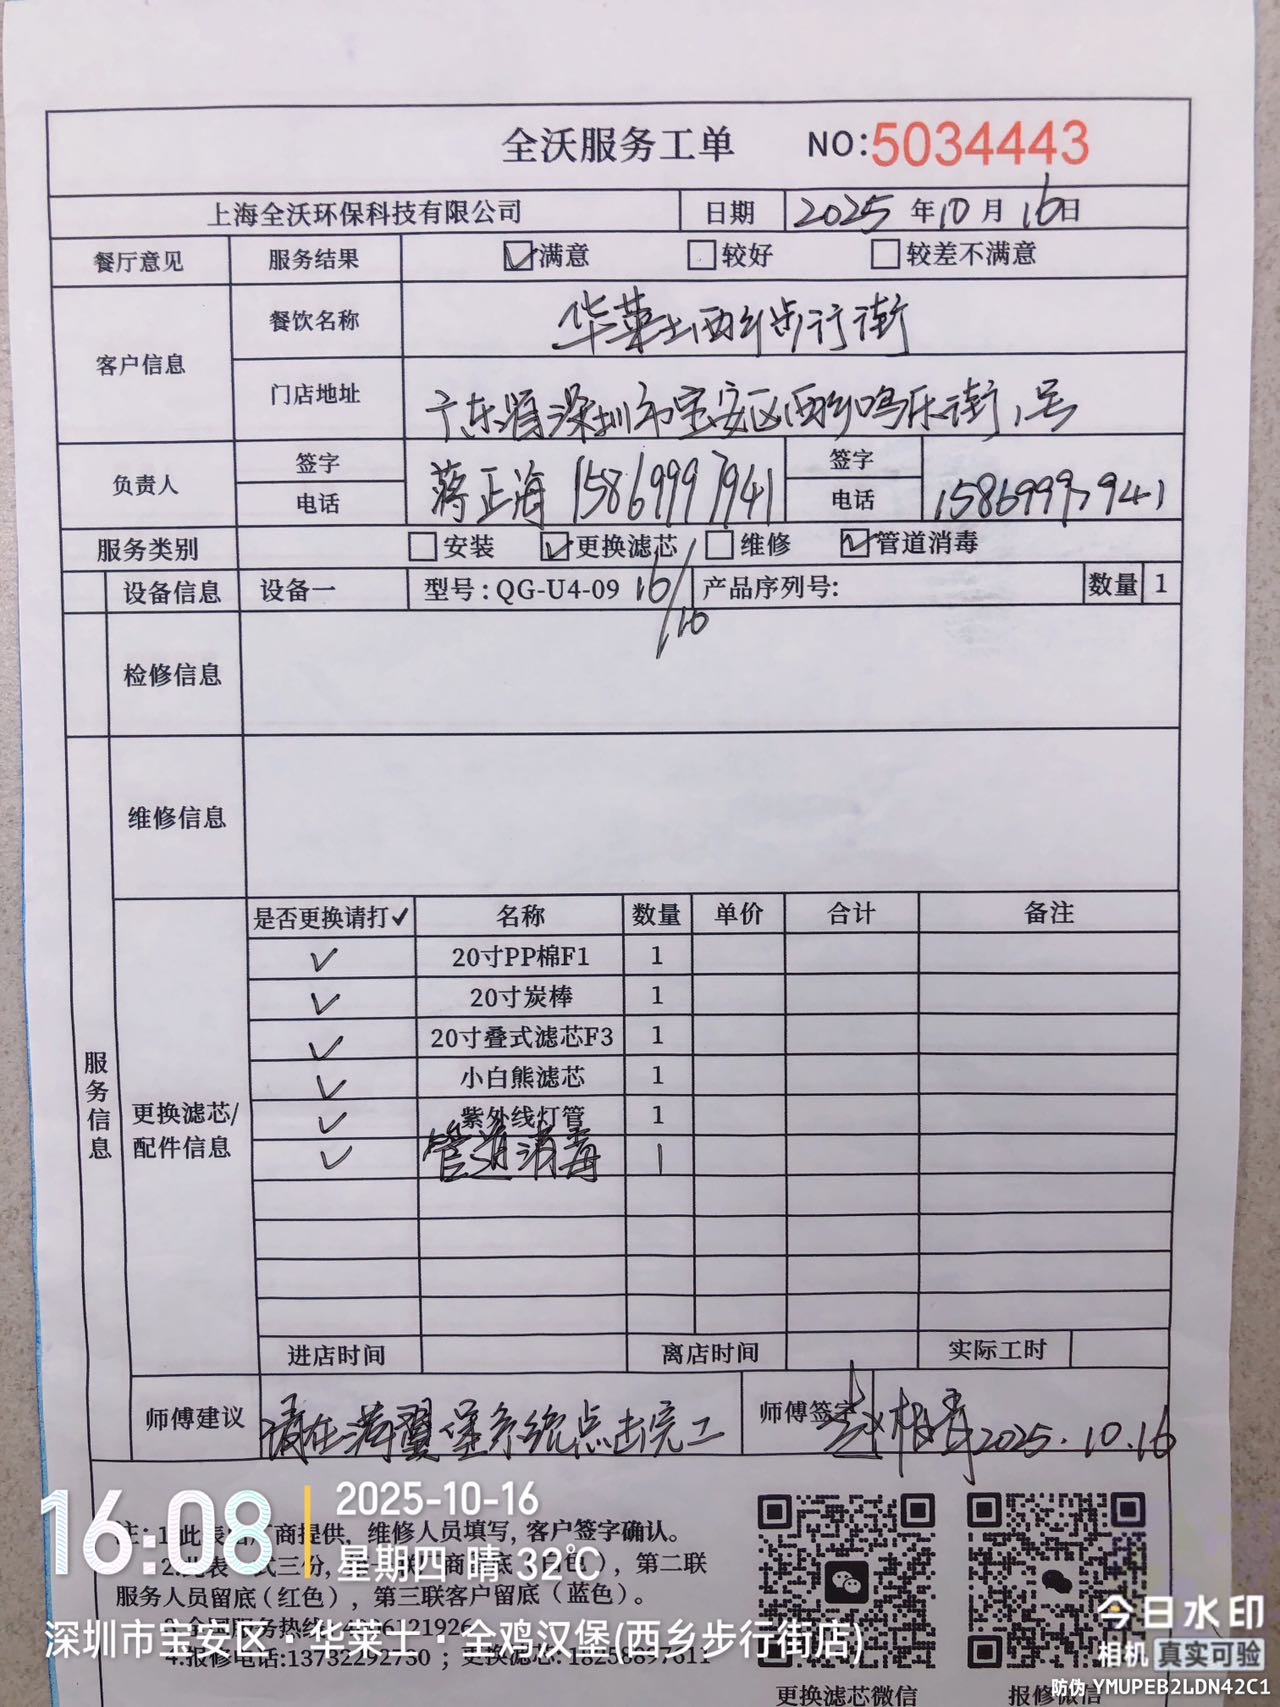 全沃服务工单 NO:5034443
上海全沃环保科技有限公司 日期 2025 年 10 月 16 日
餐厅意见 服务结果 ☑满意 □较好 □较差不满意
客户信息 餐饮名称 华莱士西乡步行街
门店地址 广东省深圳市宝安区西乡鸣乐街1号
负责人 签字 蒋正海 15869997941 签字
电话 电话 15869997941
服务类别 □安装 ☑更换滤芯 □维修 ☑管道消毒
设备信息 设备一 型号:QG-U4-09 16/10 产品序列号: 数量 1
检修信息
维修信息
服务信息
更换滤芯/配件信息
是否更换请打✓ 名称 数量 单价 合计 备注
✓ 20寸PP棉F1 1
✓ 20寸炭棒 1
✓ 20寸叠式滤芯F3 1
✓ 小白熊滤芯 1
✓ 紫外线灯管 1
✓ 管道消毒 1
进店时间 离店时间 实际工时
师傅建议 请在 系统点击完工 师傅签字 2025.10.16
注:1.此表 厂商提供,维修人员填写,客户签字确认。
2.此表一式三份, 第二联
服务人员留底(红色),第三联客户留底(蓝色)。
3.全国服务热线
4.报修电话:13732292750;更换滤芯:18258897611
更换滤芯微信 报修微信
16:08 2025-10-16
星期四 晴 32℃
深圳市宝安区·华莱士·全鸡汉堡(西乡步行街店)
今日水印
相机 真实可验
防伪 YMUPEB2LDN42C1